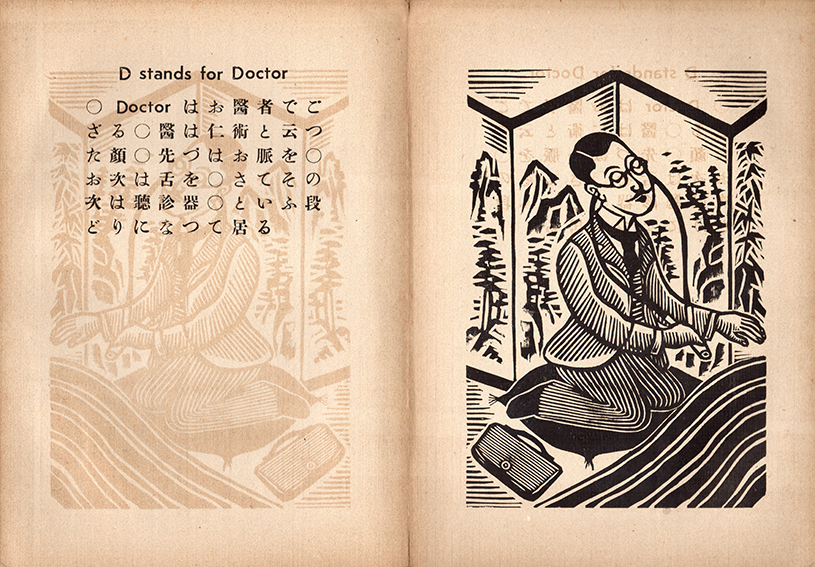 D stands for Doctor
〇 Doctor はお醫者でご
ざる〇醫は仁術と云つ
た顔〇先づはお脈を〇
お次は舌を〇さてその
次は聽診器〇といふ段
どりになつて居る